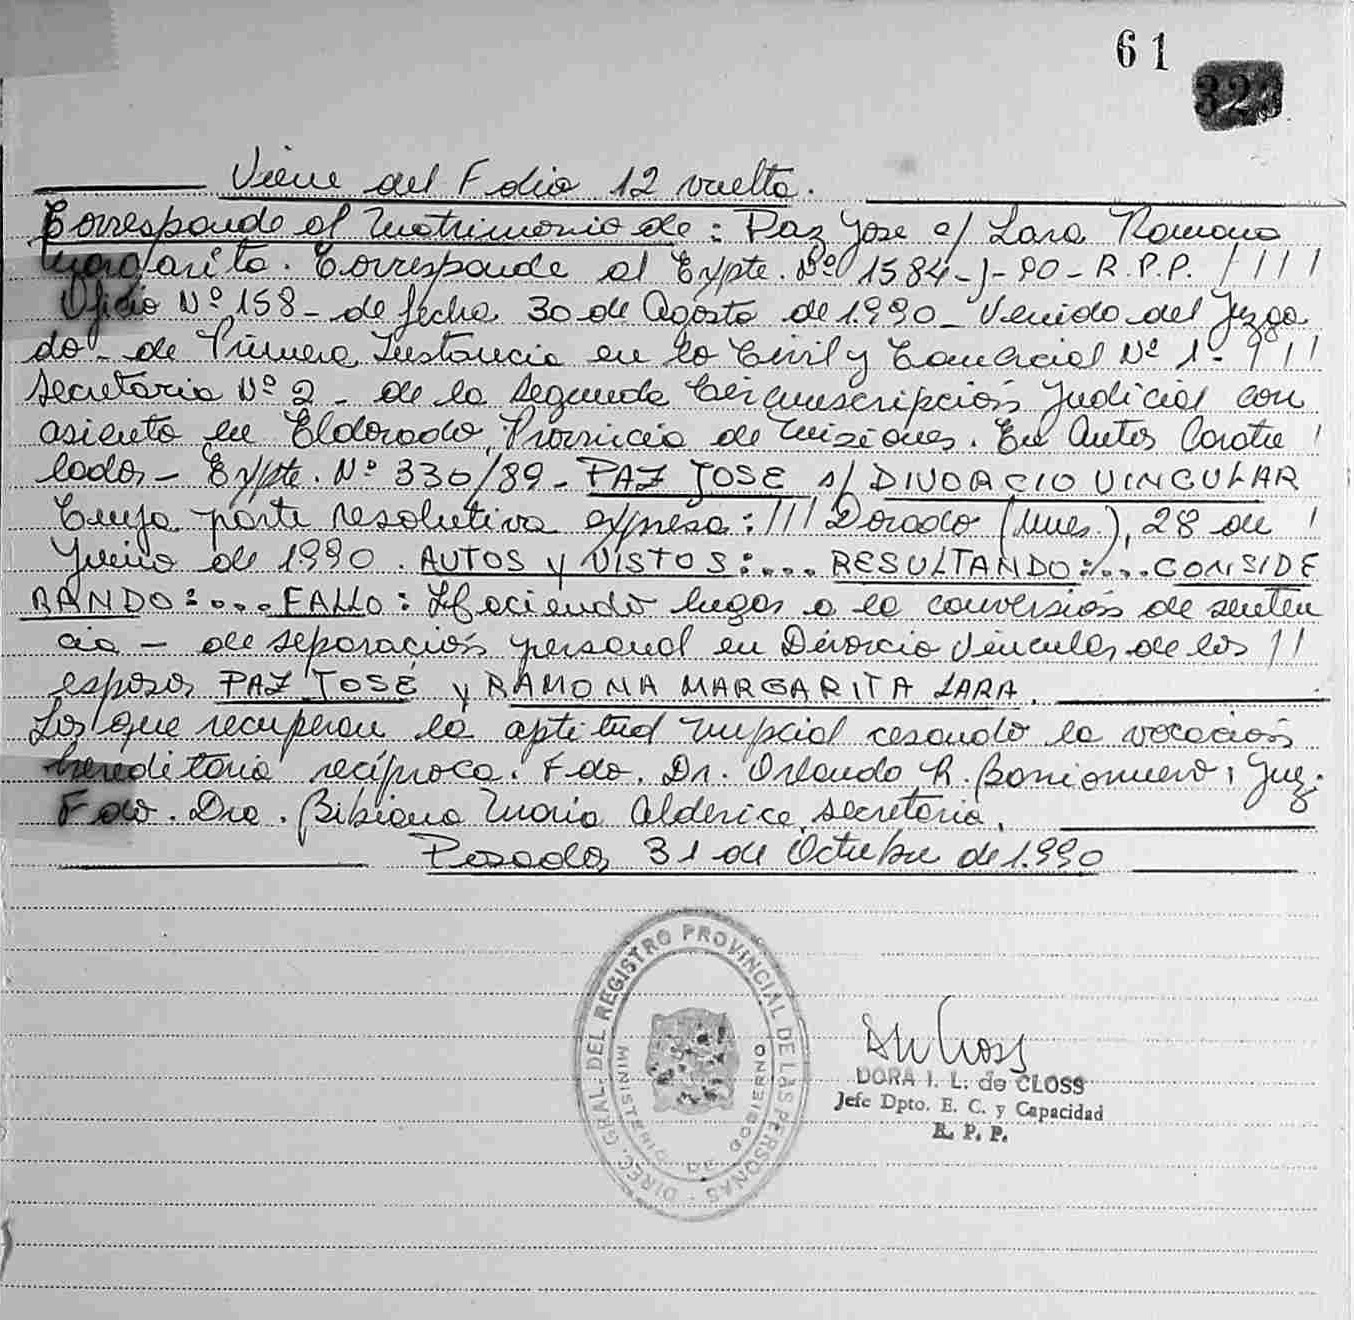 61
323
Viene del Folio 12 vuelta.
Corresponde al Matrimonio de: Paz Jose c/ Lara Ramona
Margarita. Corresponde al Expte. Nº 1584-J-90-R.P.P. / / / /
Oficio Nº 158 - de fecha 30 de Agosto de 1.990 - Venido del Juzga
do - de Primera Instancia en lo Civil y Comercial Nº 1 - / / /
Secretaria Nº 2 - de la Segunda Circunscripción Judicial con
asiento en Eldorado, Provincia de Misiones. En Autos Caratu /
lados - Expte. Nº 330/89 - PAZ JOSE s/ DIVORCIO VINCULAR
Cuya parte resolutiva expresa: /// Dorado (Mnes.), 28 de /
Junio de 1.990. AUTOS y VISTOS:... RESULTANDO:... CONSIDE
RANDO:... FALLO: Haciendo lugar a la conversión de senten
cia - de separación personal en Divorcio Vincular de los //
esposos PAZ JOSÉ y RAMONA MARGARITA LARA.
Los que recuperan la aptitud nupcial cesando la vocación
hereditaria recíproca. Fdo. Dr. Orlando R. Juez.
Fdo. Dra. Bibiana Maria Alderice, secretaria.
Posadas, 31 de Octubre de 1.990
DIREC. GRAL. DEL REGISTRO PROVINCIAL DE LAS PERSONAS
MINISTERIO DE GOBIERNO
DORA I. L. de CLOSS
Jefe Dpto. E. C. y Capacidad
R. P. P.